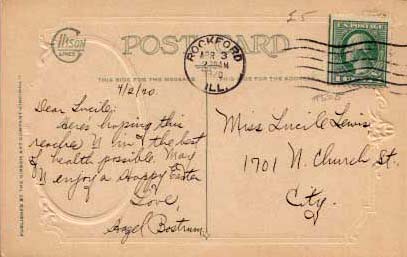 GIBSON
LINES
POST CARD
THIS SIDE FOR THE MESSAGE
THIS SIDE FOR THE ADDRESS
ROCKFORD
APR 3
ILL.
U.S. POSTAGE
4/2/20.
Dear Lucile:
Here's hoping this
reaches U in the best
of health possible. May
U enjoy a Happy Easter
Love,
Hazel Bostrum.
Miss Lucile Lewis
1701 N. Church St.
City.
PUBLISHED BY THE GIBSON ART COMPANY, CINCINNATI